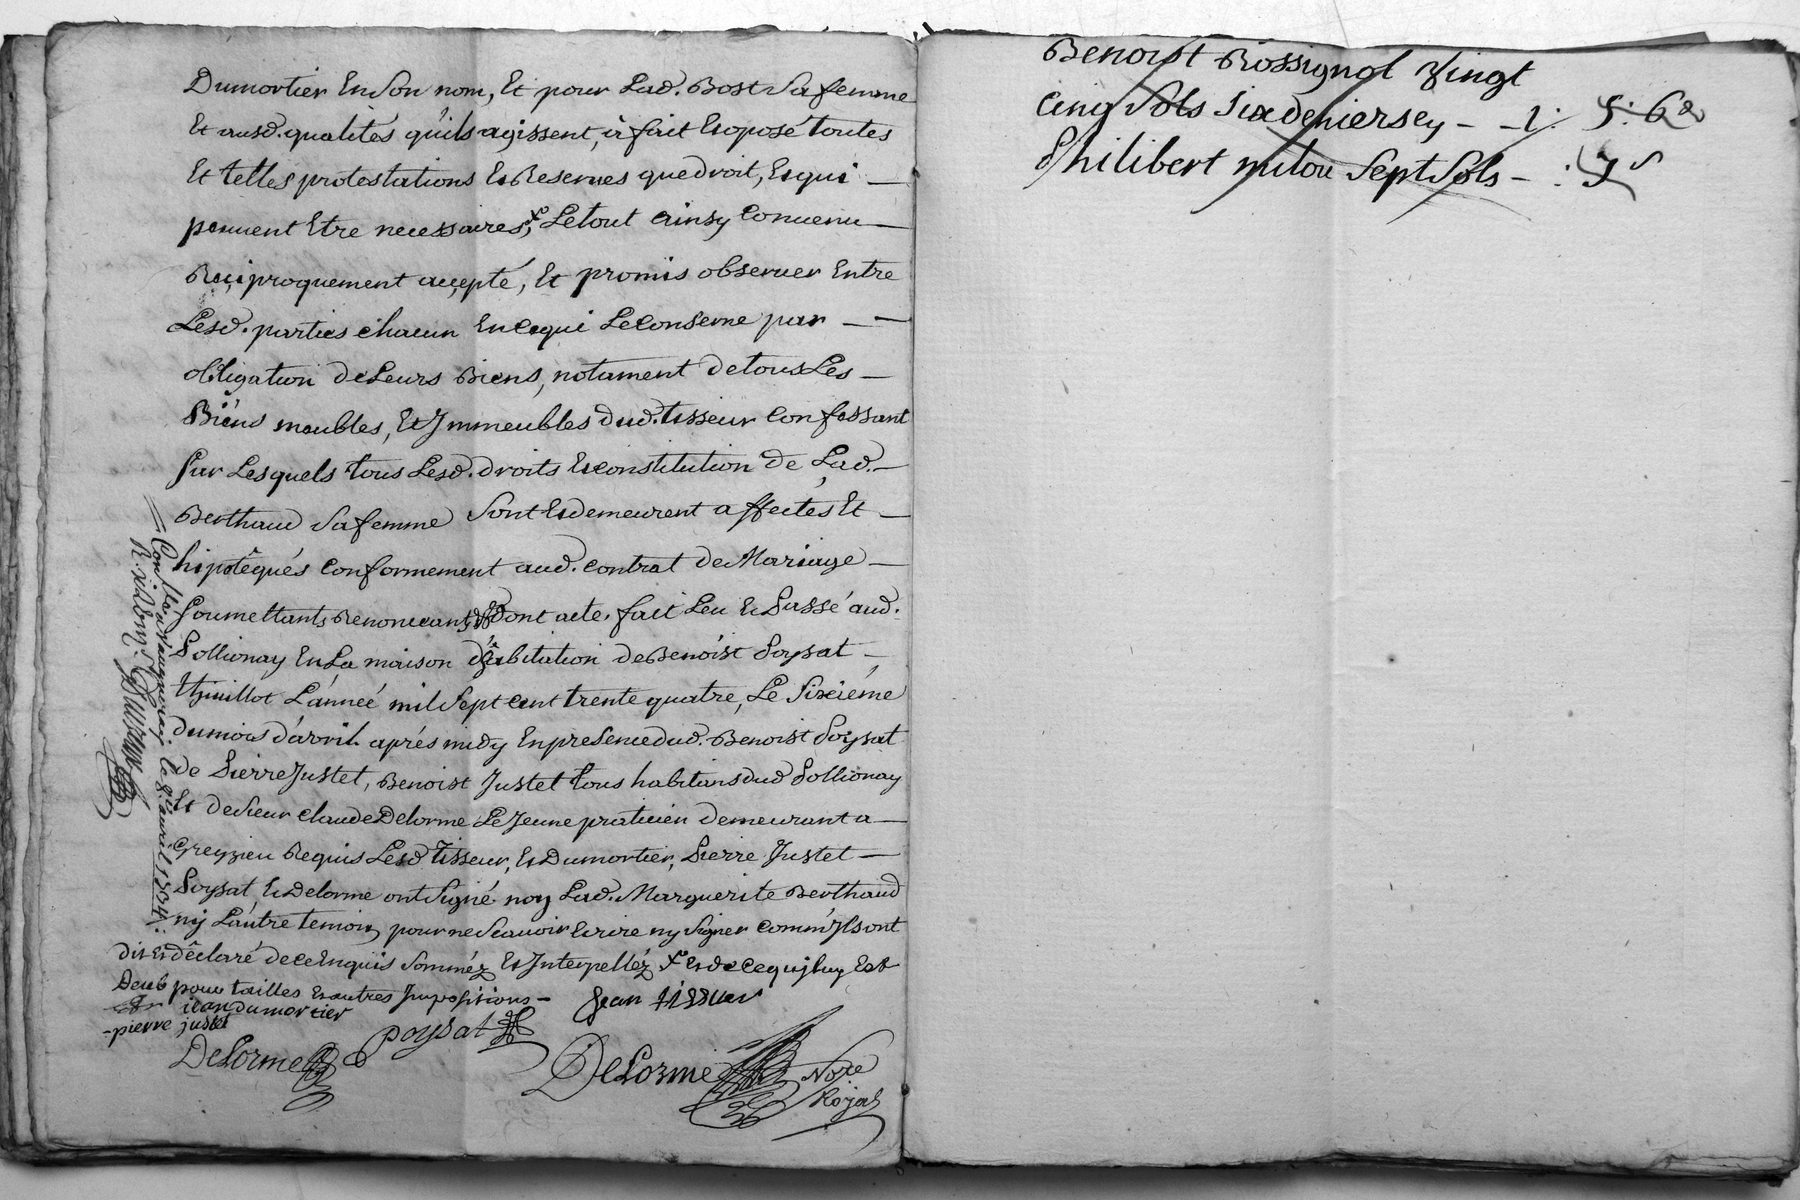 Dumortier En Son nom, Et pour Lad. Bost Sa femme
Et ausd. qualités qu'ils agissent, à fait Et oposé toutes
Et telles protestations Et Reserves que droit, Et qui —
peuvent Etre necessaires, x Le tout ainsy Convenu —
Reciproquement accepté, Et promis observer Entre
Lesd. parties chacun En ce qui Le Conserne par — —
obligation de Leurs Biens, notament de tous Les —
Biens meubles, Et Jmmeubles dud. tisseur Confessant
Sur Lesquels tous Lesd. droits Et constitution de Lad. —
Berthaud Sa femme Sont Et demeurent affectés Et —
hipotêqués Conformement aud. contrat de Mariage —
Soumettants Renonceants dont acte, fait Leu Et Passé aud.
Pollionay En La maison d'habitation de Benoist Poysat —
thuillot L'année mil Sept cent trente quatre, Le Sixiéme
du mois d'avril aprés midy En presence dud. Benoist Poysat
de Pierre Justet, Benoist Justet tous habitans dud Pollionay
Et de Sieur Claude Delorme Le Jeune praticien demeurant a —
Greyzieu Requis Lesd Tisseur, Et Dumortier, Pierre Justet —
Poysat, Et Delorme ont Signé non Lad. Marguerite Berthaud
ny L'autre temoin pour ne Scavoir Ecrire ny Signer Comm'Jls ont
dit Et déclaré de ce Enquis Sommêz Et Jnterpelléz x Et de ce qui luy Est
Deub pour tailles Et autres Jmpositions —
Jean tisseur
jean dumortier
- pierre justet
poysat
DeLorme
DeLorme
No.re
Royal
Con.llé a vaugneray le 8.e auril 1734:
R. douze s.
Benoist Rossignol Vingt
Cinq Sols Six deniers cy - - 1: 5: 6 d
Philibert milou Sept Sols - : 7 s